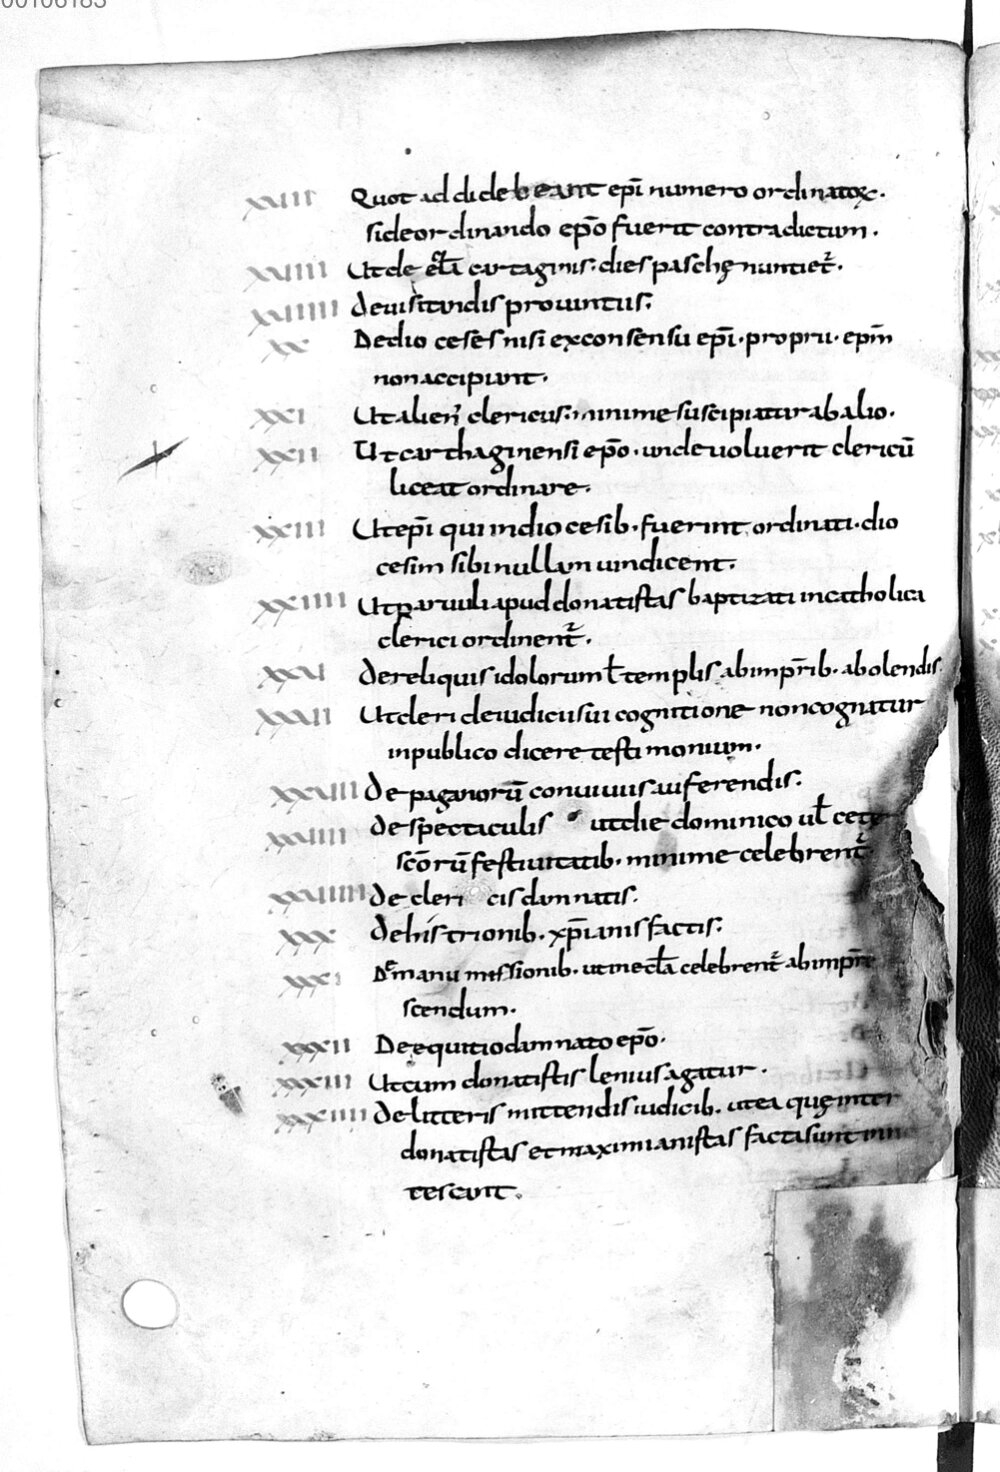 00106183
xviii Quot addi debeant ep̄i numero ordinatox.
si de ordinando ep̄o fuerit contradictum.
xviiii Ut de ecl̄a cartaginis. dies paschę nuntiet̄.
xviiiii de uisitandis prouintiis.
xx Dedio ceses nisi ex consensu ep̄i. proprii. ep̄m
non accipiant.
xxi Ut alien̄ clericus. minime suscipiatur ab alio.
xxii Ut carthaginensi ep̄o. unde uoluerit clericū
liceat ordinare.
xxiii Ut ep̄i qui in diocesib. fuerint ordinati. dio
cesim sibi nullam uindicent.
xxiiii Ut paruuli apud donatistas baptizati in catholica
clerici ordinent̄.
xxv de reliquis idolorum ł templis ab imp̄rib. abolendis
xxvii Ut cleri de iudicii sui cognitione non cognatur
in publico dicere testimonium.
xxviii de paganorū conuiuiis auferendis.
de spectaculis ut die dominico uł cete
sc̄orū festiuitatib. minime celebrent̄
de clericis damnatis.
xxx de histrionib. xp̄ianis factis.
xxxi De manu missionib. ut in ecl̄a celebrent̄ ab imp̄re
scendum.
xxxii De equitio damnato ep̄o.
xxxiii Ut cum donatistis lenius agatur.
xxxiiii de litteris mittendis iudicib. ut ea quę inter
donatistas et maximianistas facta sunt inno
tescant.